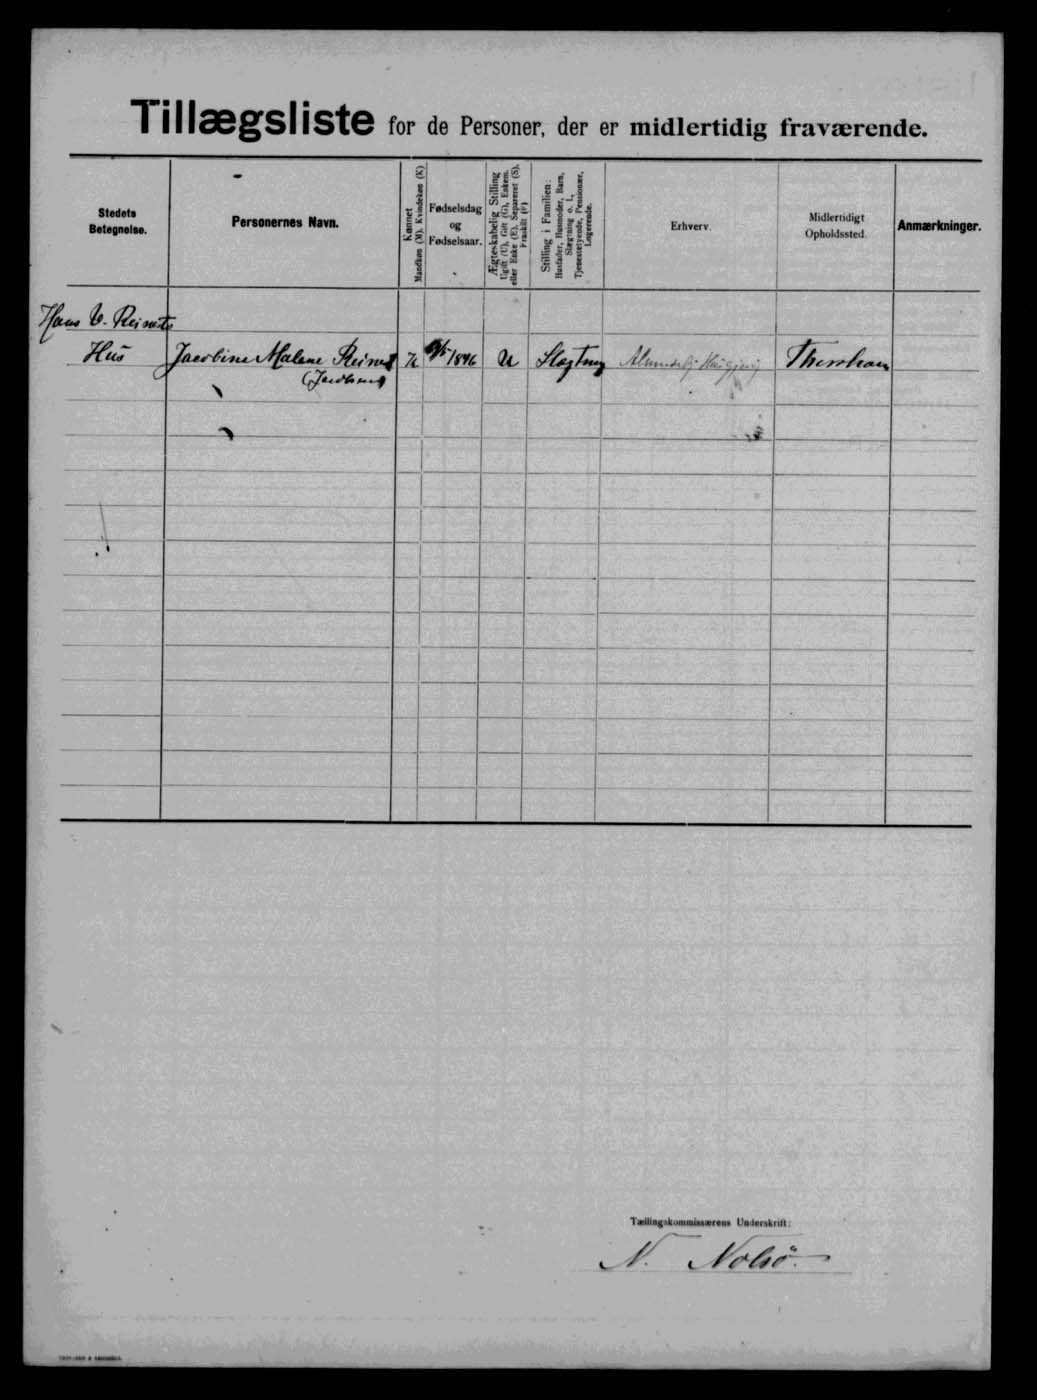 Tillægsliste for de Personer, der er midlertidig fraværende.
Stedets Betegnelse.
Personernes Navn.
Kønnet
Mandkøn (M). Kvindekøn (K)
Fødselsdag og Fødselsaar.
Ægteskabelig Stilling
Ugift (U), Gift (G), Enkem. eller Enke (E), Separeret (S), Fraskilt (F)
Stilling i Familien:
Husfader, Husmoder, Barn, Slægtning o. l., Tjenestetyende, Pensionær, Logerende.
Erhverv.
Midlertidigt Opholdssted.
Anmærkninger.
Hans V. Reinerts
Hus Jacobine Malene Reinert K 1846 U Slægtning Thorshavn
(Jacobsen)
Tællingskommissærens Underskrift:
N. Nolsø.